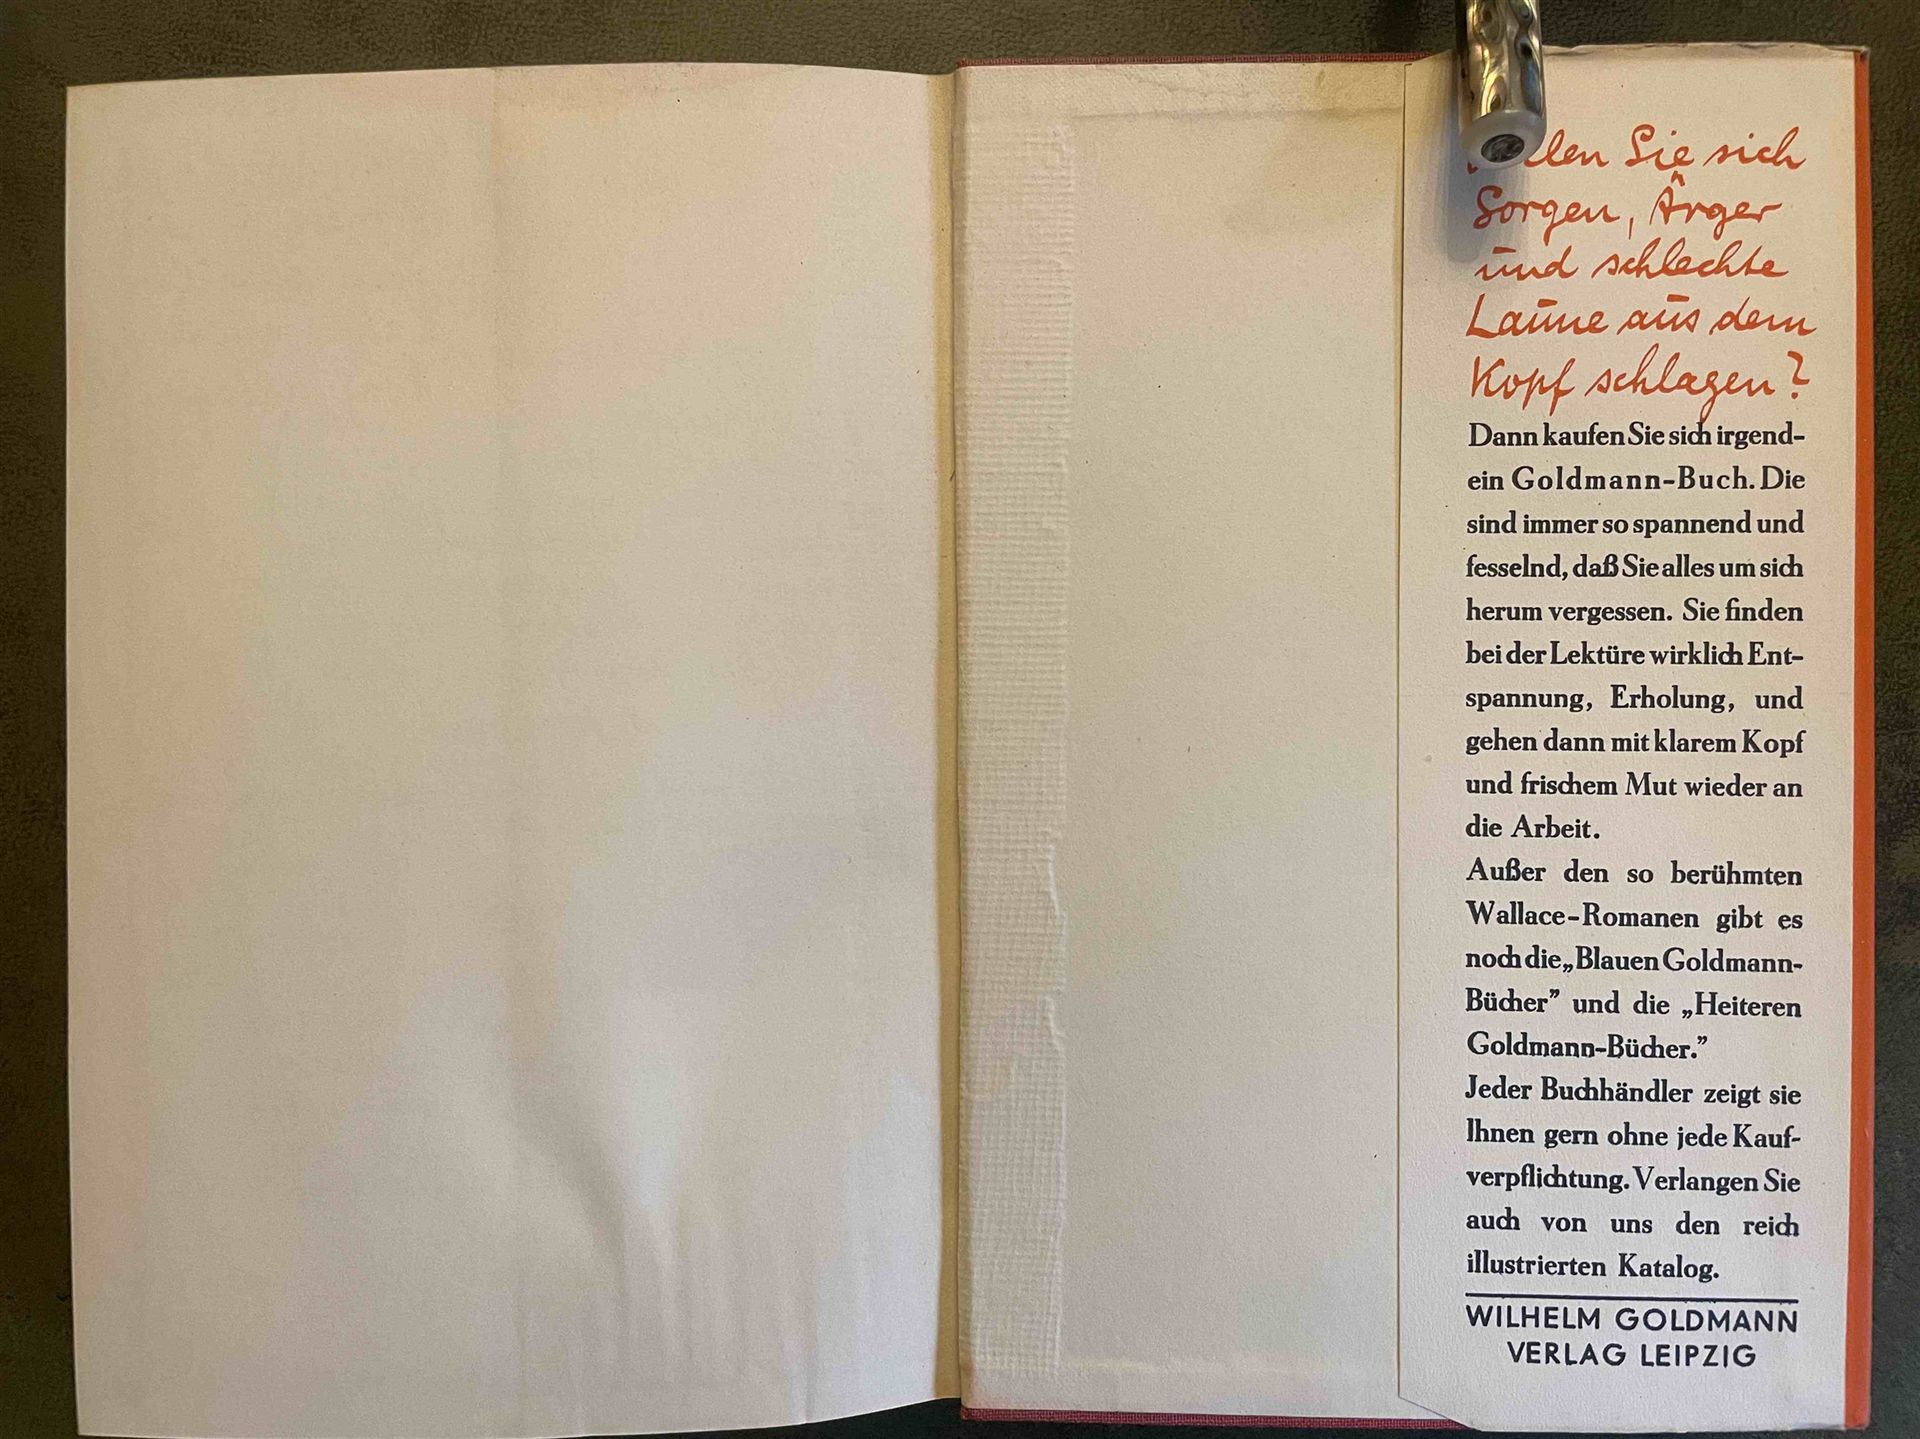 Sie sich
Sorgen, Ärger
und schlechte
Laune aus dem
Kopf schlagen?
Dann kaufen Sie sich irgend-
ein Goldmann-Buch. Die
sind immer so spannend und
fesselnd, daß Sie alles um sich
herum vergessen. Sie finden
bei der Lektüre wirklich Ent-
spannung, Erholung, und
gehen dann mit klarem Kopf
und frischem Mut wieder an
die Arbeit.
Außer den so berühmten
Wallace-Romanen gibt es
noch die „Blauen Goldmann-
Bücher” und die „Heiteren
Goldmann-Bücher.”
Jeder Buchhändler zeigt sie
Ihnen gern ohne jede Kauf-
verpflichtung. Verlangen Sie
auch von uns den reich
illustrierten Katalog.
WILHELM GOLDMANN
VERLAG LEIPZIG